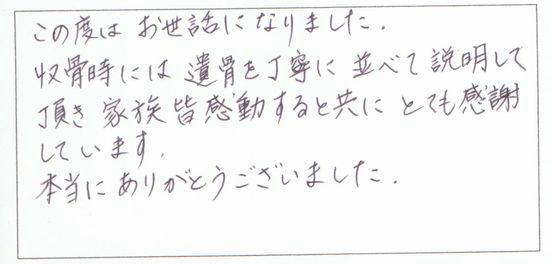 この度は お世話になりました.
収骨時には 遺骨を丁寧に 並べて説明して
頂き 家族皆感動すると共に とても感謝
しています.
本当に ありがとうございました.